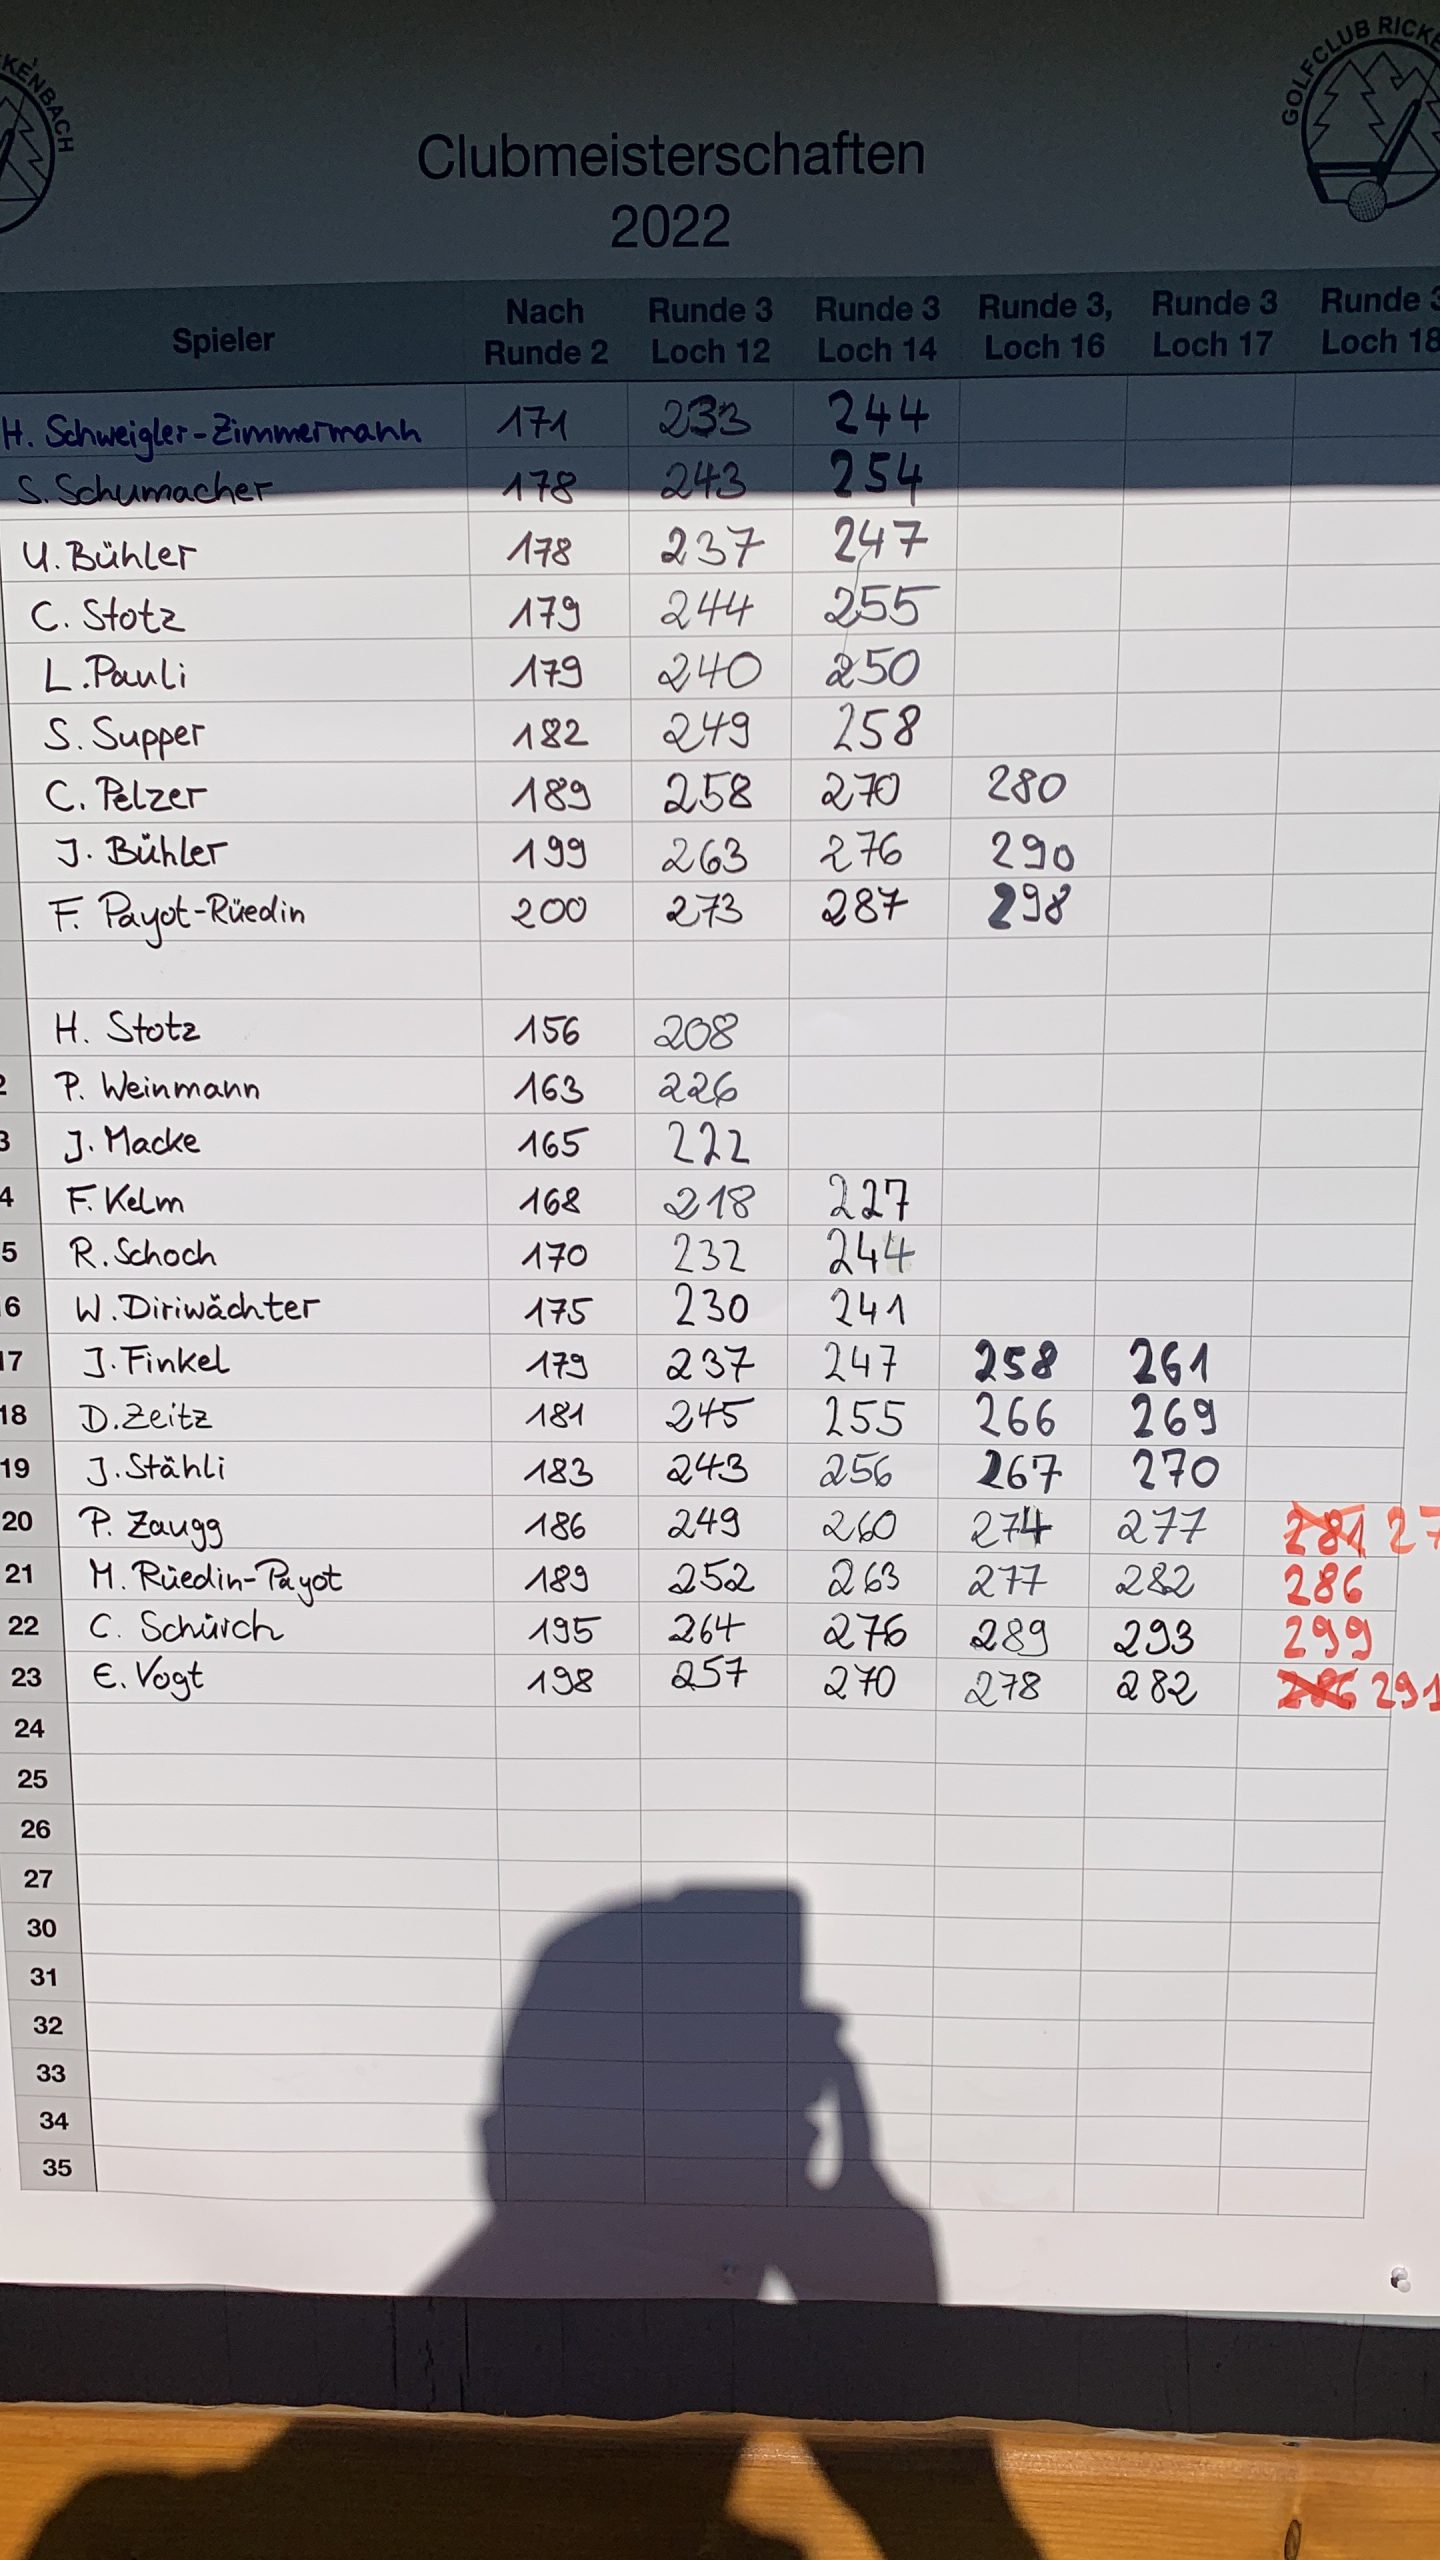 KENBACH
GOLFCLUB RICKE
Clubmeisterschaften
2022
Spieler Nach Runde 2 Runde 3 Loch 12 Runde 3 Loch 14 Runde 3, Loch 16 Runde 3 Loch 17 Runde 3 Loch 18
H. Schweigler-Zimmermann 171 233 244
S. Schumacher 178 243 254
U. Bühler 178 237 247
C. Stotz 179 244 255
L. Pauli 179 240 250
S. Supper 182 249 258
C. Pelzer 189 258 270 280
J. Bühler 199 263 276 290
F. Payot-Rüedin 200 273 287 298
H. Stotz 156 208
2 P. Weinmann 163 226
3 J. Macke 165 222
4 F. Kelm 168 218 227
5 R. Schoch 170 232 244
6 W. Diriwächter 175 230 241
17 J. Finkel 179 237 247 258 261
18 D. Zeitz 181 245 255 266 269
19 J. Stähli 183 243 256 267 270
20 P. Zaugg 186 249 260 274 277 281 27
21 M. Rüedin-Payot 189 252 263 277 282 286
22 C. Schürch 195 264 276 289 293 299
23 E. Vogt 198 257 270 278 282 286 291
24
25
26
27
30
31
32
33
34
35